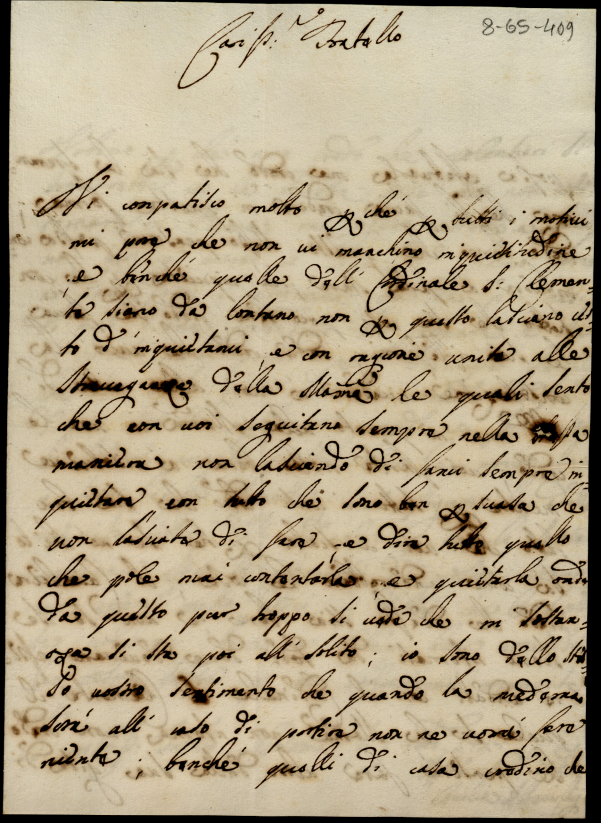 8-65-409
Cariss:mo Fratello
Vi compatisco molto p ché p tutti i motivi
mi pare che non vi manchino inquietitudine
e benché quelle dell' Cardinale S: Clemen-
te siano da lontano non p questo lasciano cer-
to d' inquietarvi, e con ragione unite alle
stravaganze della Mamà le quali sento
che con voi seguitano sempre nella stessa
maniera non lasciando di farvi sempre in-
quietare con tutto che sono ben p suasa che
non lasciate di fare, e dire tuto quello
che pole mai contentarla e quietarla onde
da questo pur troppo si vede che in sostan-
za si sta poi all' solito; io sono dello stes-
so vostro sentimento che quando la medema
sarà all' caso di partire non ne vorrà fare
niente; benché quelli di casa credino che